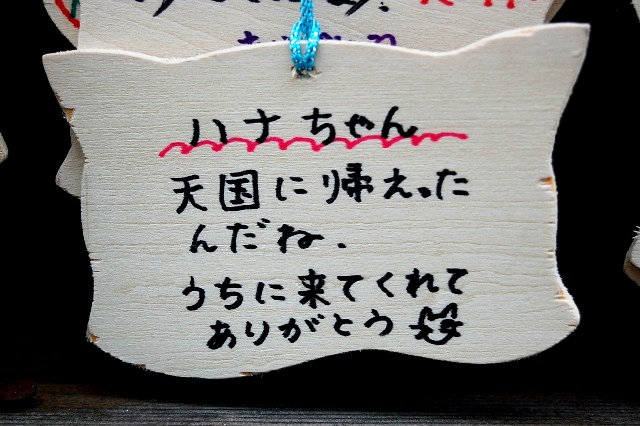 ハナちゃん
天国に帰えった
んだね.
うちに来てくれて
ありがとう